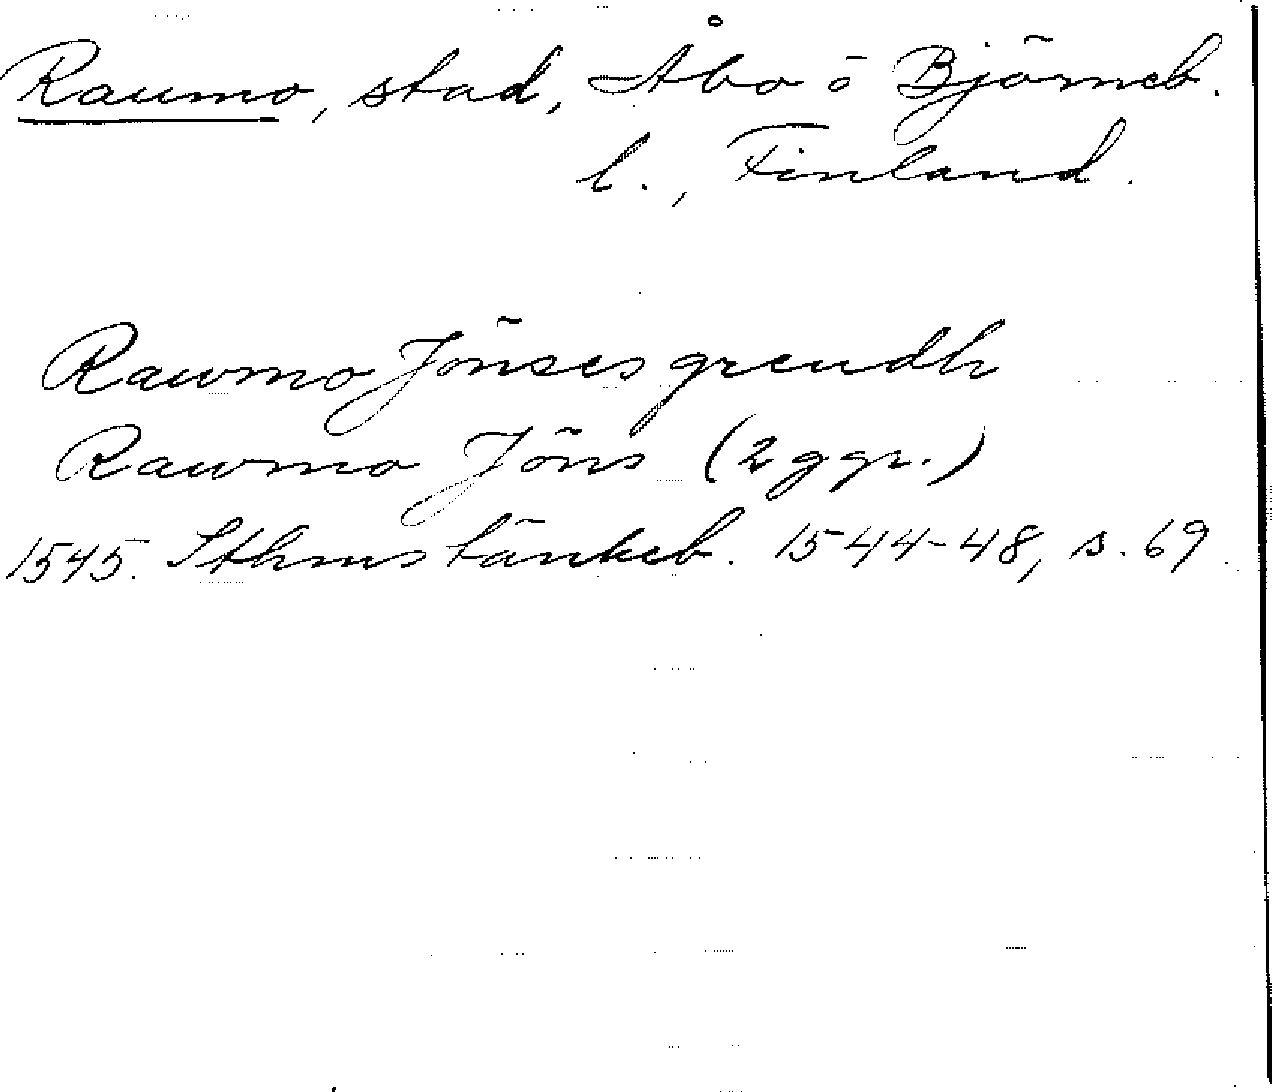 Raumo, stad, Åbo ö Björneb.
l., Finland.
Rawmo Jönses grendh
Rawmo Jöns (2 ggr.)
1545. Sthms tänkeb. 1544-48, s. 69.